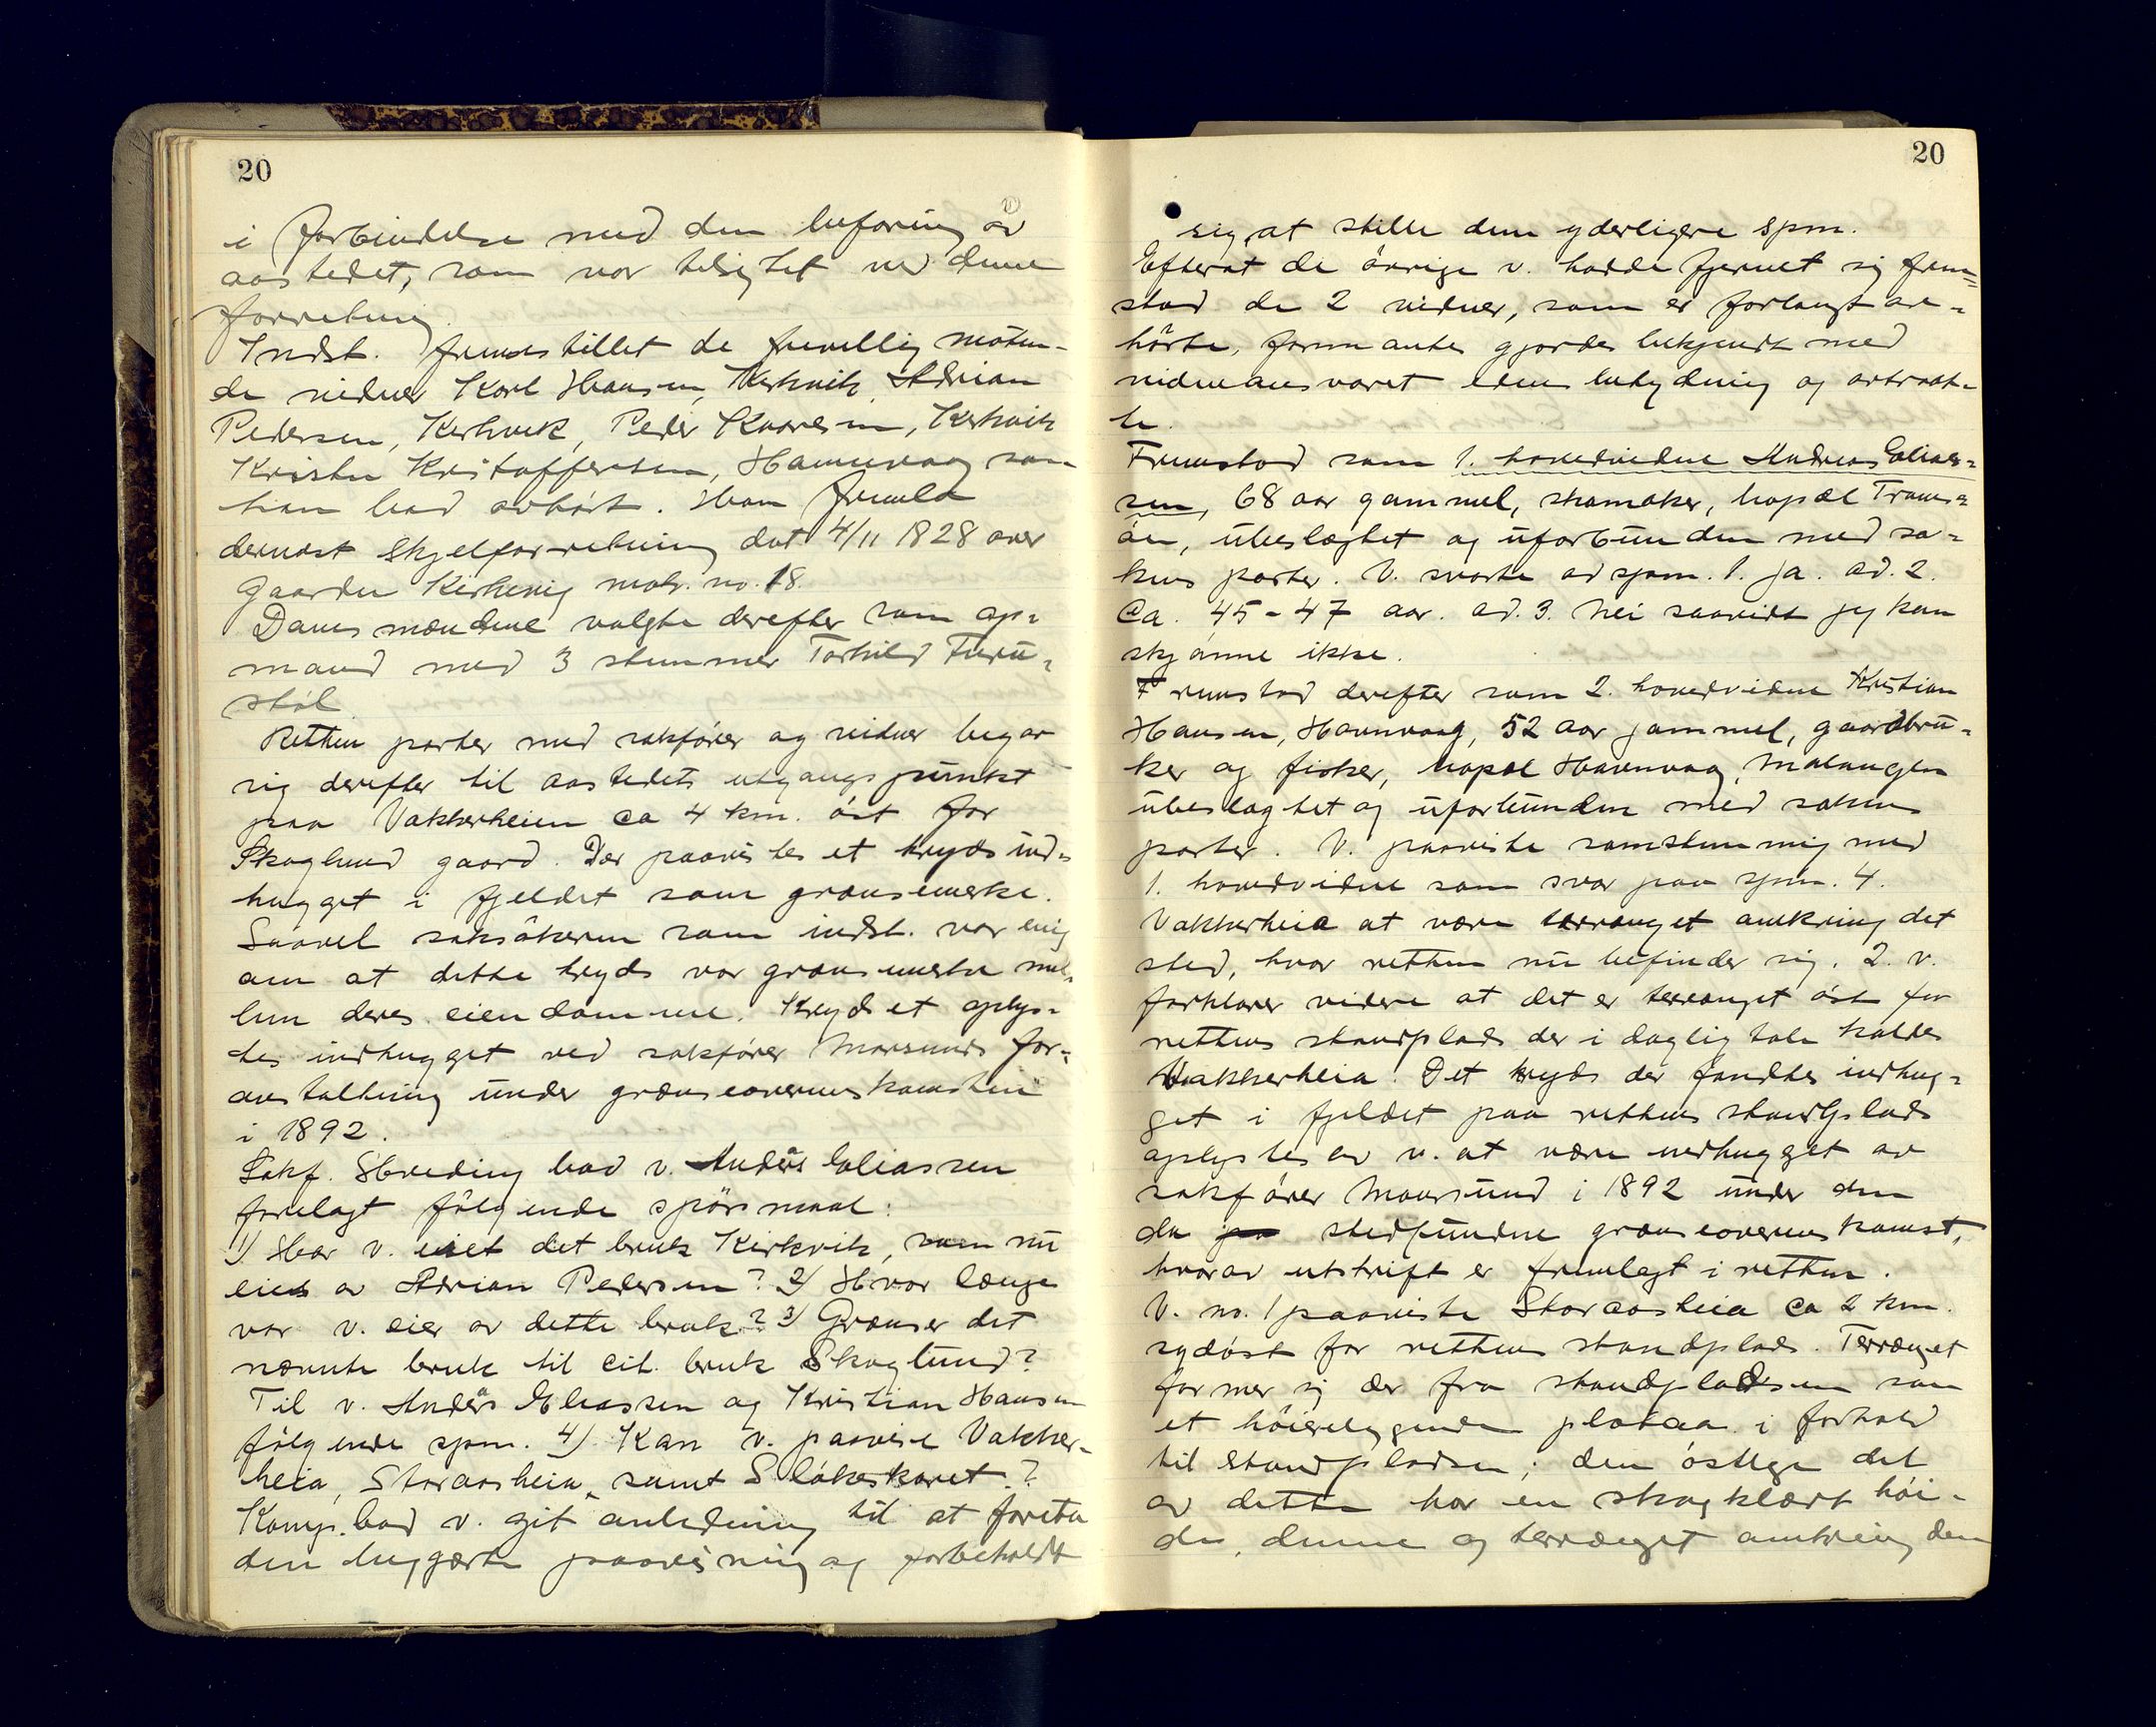 20
i forbindelse med den befaring av
aastedet, som var tilsigtet ved denne
forretning.
Indst. fremstillet de frivillig møten-
de vidner Karl Hansen, Kirkvik, Adrian
Pedersen, Kirkvik, Peder Kaaresen, Kirkvik
Krister Kristoffersen, Hamnvaag som
han bad avhørt. Han fremla
dernæst skjelforretning dat 4/11 1828 over
gaarden Kirkevig matr. no. 18.
Danemændene valgte derefter som op-
mand med 3 stemmer Torkild Furu-
støl.
Retten parter med sakfører og vidner begav
sig derefter til aastedets utgangspunkt
paa Vakkerheien ca 4 km. øst for
Skoglund gaard. Der paavistes et kryds ind-
hugget i fjeldet som grænsemerke.
Saavel saksøkeren som indst. var enig
om at dette kryds var grænsemerke mel-
lem deres eiendomme. Krydset oplys-
tes indhugget ved sakfører Maursunds for-
anstaltning under grænseoverenskomsten
i 1892.
Sakf. Hveding bad v. Anders Eliassen
forelagt følgende spørsmaal:
1) Har v. eiet det bruk Kirkvik, som nu
eies av Adrian Pedersen? 2) Hvor længe
var v. eier av dette bruk? 3) Grænser det
nævnte bruk til cit. bruk Skoglund?
Til v. Anders Eliassen og Kristian Hansen
følgende spm. 4) Kan v. paavise Vakker-
heia, Storaasheia, samt Sløkeskaret?
Komp. bad v. git anledning til at foreta
den begjærte paavisning og forbeholdt
20
sig at stille dem yderligere spm.
Efterat de øvrige v. hadde fjernet sig frem-
stod de 2 vidner, som er forlangt av-
hørte, formantes gjordes bekjendt med
vidneansvaret edens betydning og avtraad-
te.
Fremstod som 1. hovedvidne Andreas Elias-
sen, 68 aar gammel, skomaker, bopæl Troms-
øen, ubeslægtet og uforbunden med sa-
kens parter. V. svarte ad spm. 1. ja. ad. 2.
ca. 45-47 aar. ad. 3. Nei saavidt jeg kan
skjønne ikke.
Fremstod derefter som 2. hovedvidne Kristian
Hansen, Havnvaag, 52 aar gammel, gaardbru-
ker og fisker, bopæl Havnvaag, Malangen
ubeslægtet og uforbunden med sakens
parter. V. paaviste samstemmig med
1. hovedvidne som svar paa spm. 4.
Vakkerheia at være terrænget omkring det
sted, hvor retten nu befinder sig. 2. v.
forklarer videre at det er terrænget øst for
rettens standplads der i daglig tale kaldes
Vakkerheia. Det kryds der fandtes indhug-
get i fjeldet paa rettens standplads
oplystes av v. at være indhugget av
sakfører Maursund i 1892 under den
da stedfundne grænseoverenskomst,
hvorav utskrift er fremlagt i retten.
V. no. 1 paaviste Storaasheia ca 2 km.
sydøst for rettens standplads. Terrænget
former sig der fra standpladsen som
et høiereliggende plataa i forhold
til standpladsen; den østlige del
av dette har en skogklædt høi-
de, denne og terrænget omkring den